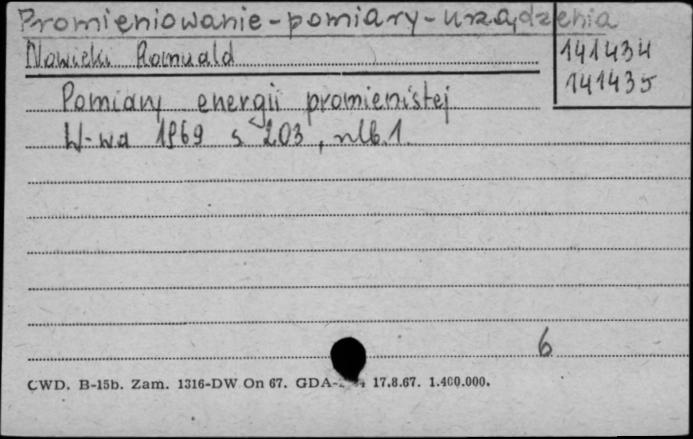 Promieniowanie-pomiary-urządzenia
Nowicki Romuald
141434
141435
Pomiary energii promienistej
W-wa 1969 s 203, nlb.1.
6
CWD. B-15b. Zam. 1316-DW On 67. GDA- 17.8.67. 1.400.000.